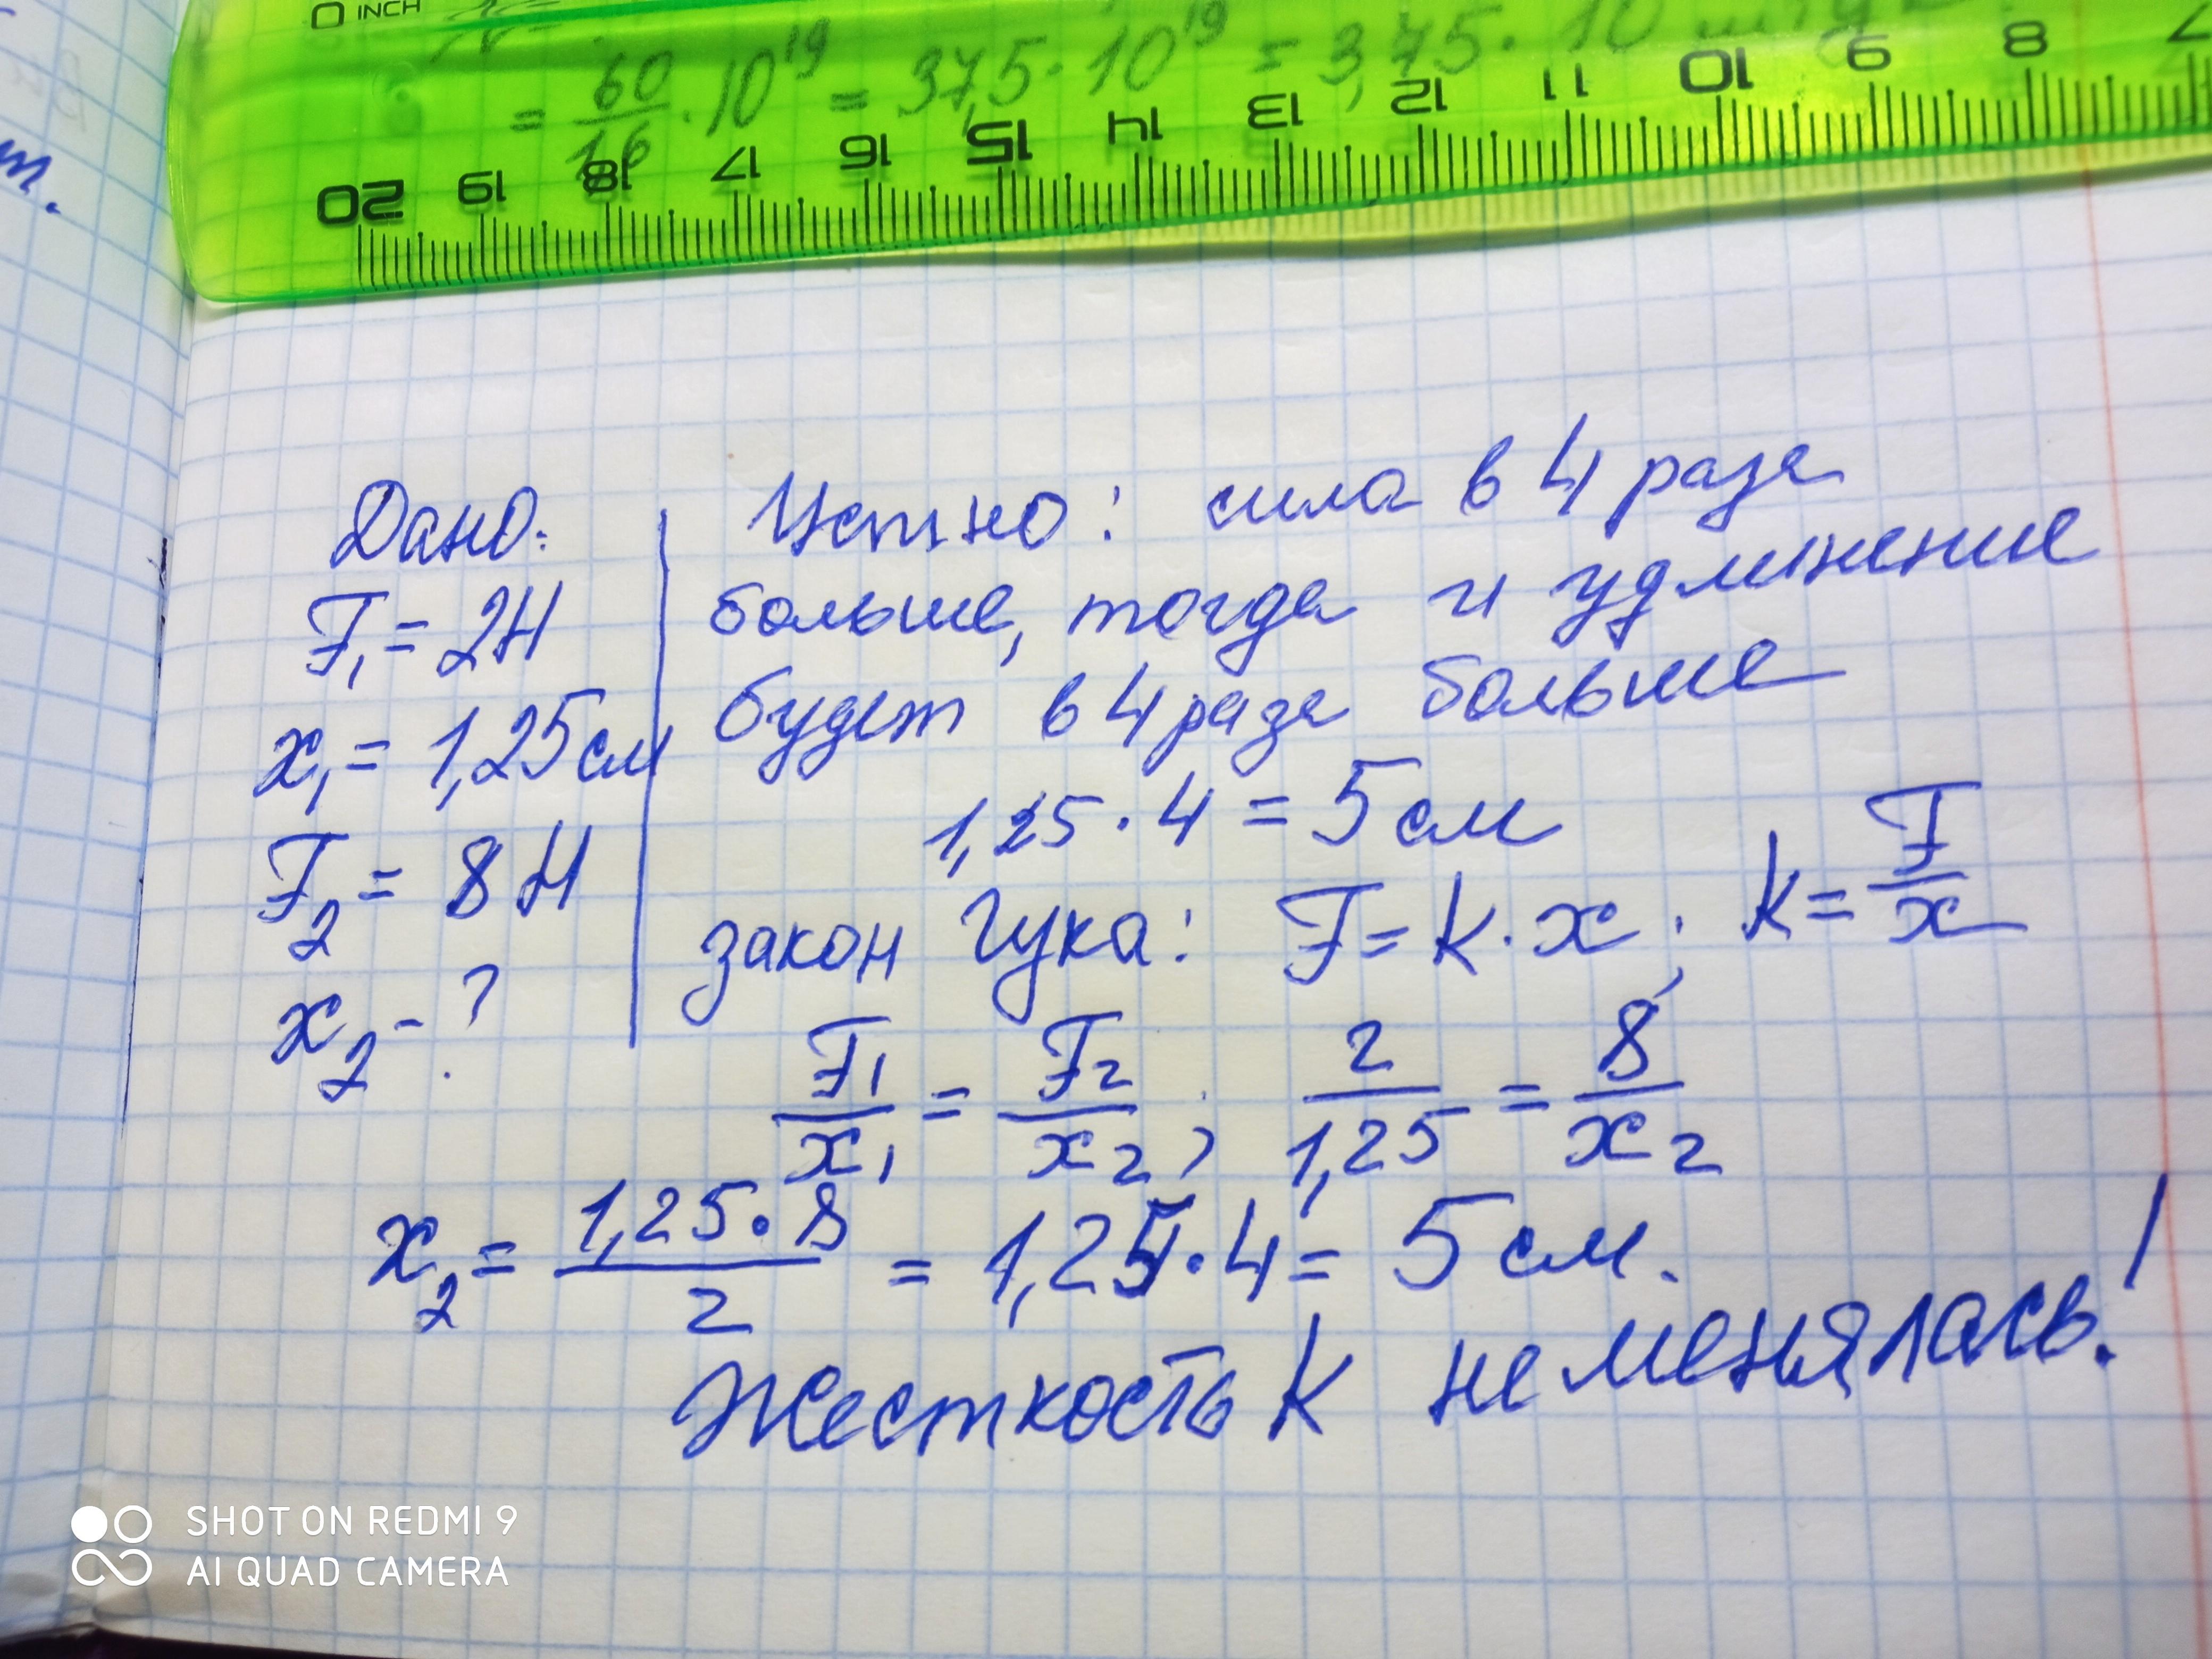 0 INCH
= 60/16 · 10¹⁹ = 37,5 · 10¹⁹ = 3,75 · 10
20 19 18 17 16 15 14 13 12 11 10 9 8 7
т.
Дано: Устно: сила в 4 раза
F₁ = 2Н больше, тогда и удлинение
x₁ = 1,25 см будет в 4 раза больше
1,25 · 4 = 5 см
F₂ = 8 Н закон Гука: F = k · x; k = F/x
x₂ - ?
F₁/x₁ = F₂/x₂, 2/1,25 = 8/x₂
x₂ = 1,25 · 8/2 = 1,25 · 4 = 5 см.
Жесткость k не менялась!
SHOT ON REDMI 9
AI QUAD CAMERA